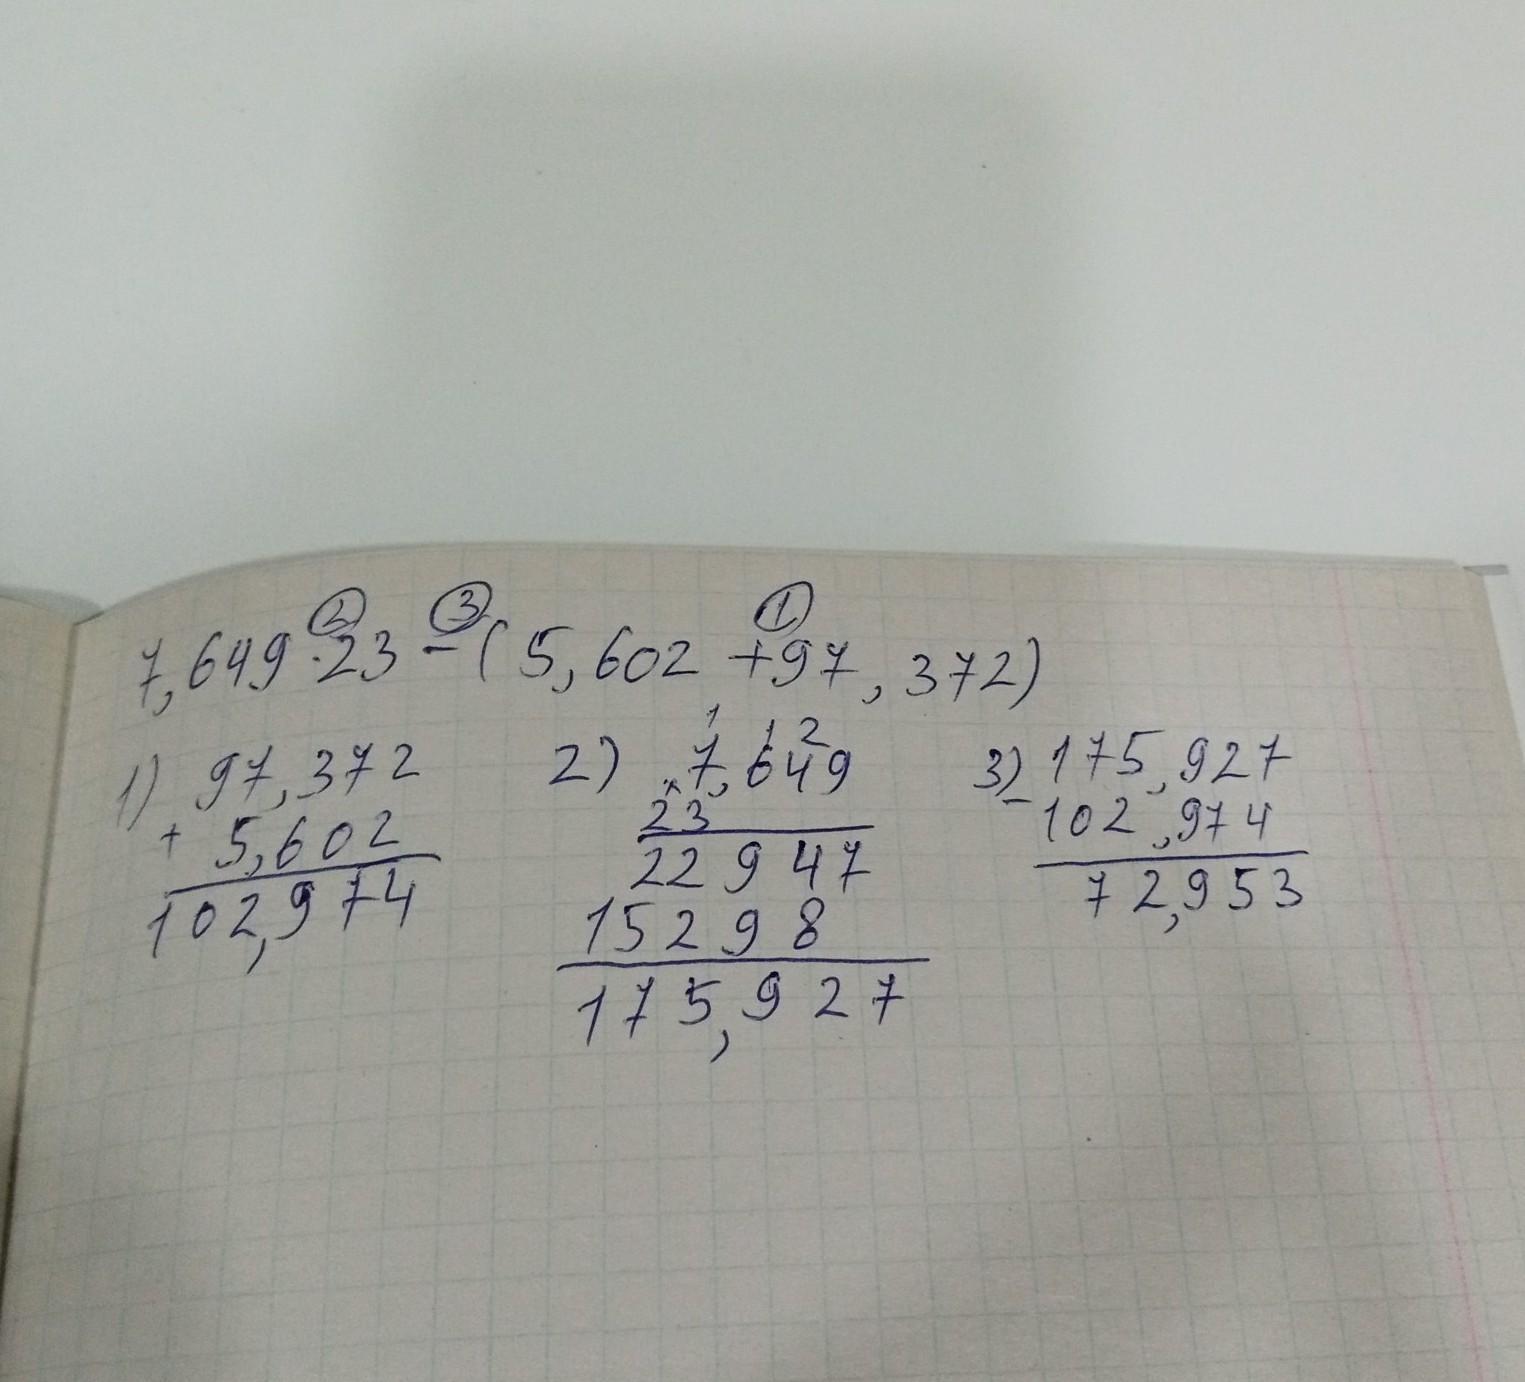 ② ③ ①
7,649·23-(5,602+97,372)
1) 97,372
+ 5,602
102,974
1 1 2
2) 7,649
×
23
22947
15298
175,927
3) 175,927
- 102,974
72,953